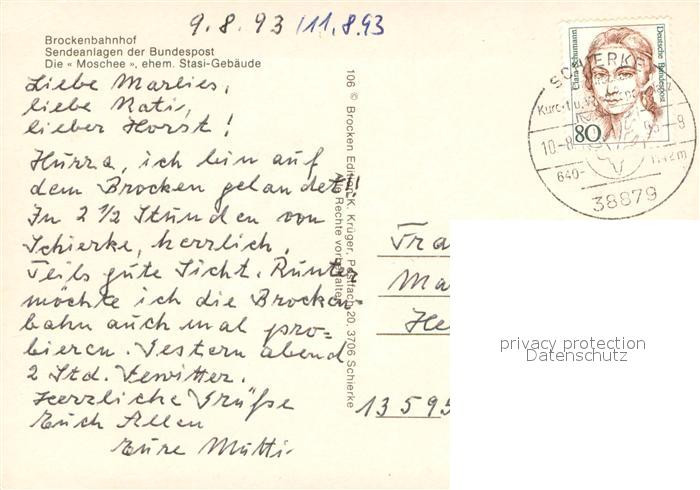 9.8.93 /11.8.93
Brockenbahnhof
Sendeanlagen der Bundespost
Die « Moschee », ehem. Stasi-Gebäude
Liebe Marlies,
liebe Kati,
lieber Horst!
Hurra, ich bin auf
dem Brocken gelandet!!
In 2 1/2 Stunden von
Schierke, herrlich,
Teils gute Sicht. Runter
möchte ich die Brocken-
bahn auch mal pro=
bieren. Gestern abend
2 Std. Gewitter.
Herzliche Grüße
Euch Allen
Eure Mutti
106 © Brocken Edition K. Krüger, Postfach 20, 3706 Schierke
Alle Rechte vorbehalten
Clara Schumann
Deutsche Bundespost
80
SCHIERKE
10-8
640-
38879
Fra
Ma
He
13595
privacy protection
Datenschutz